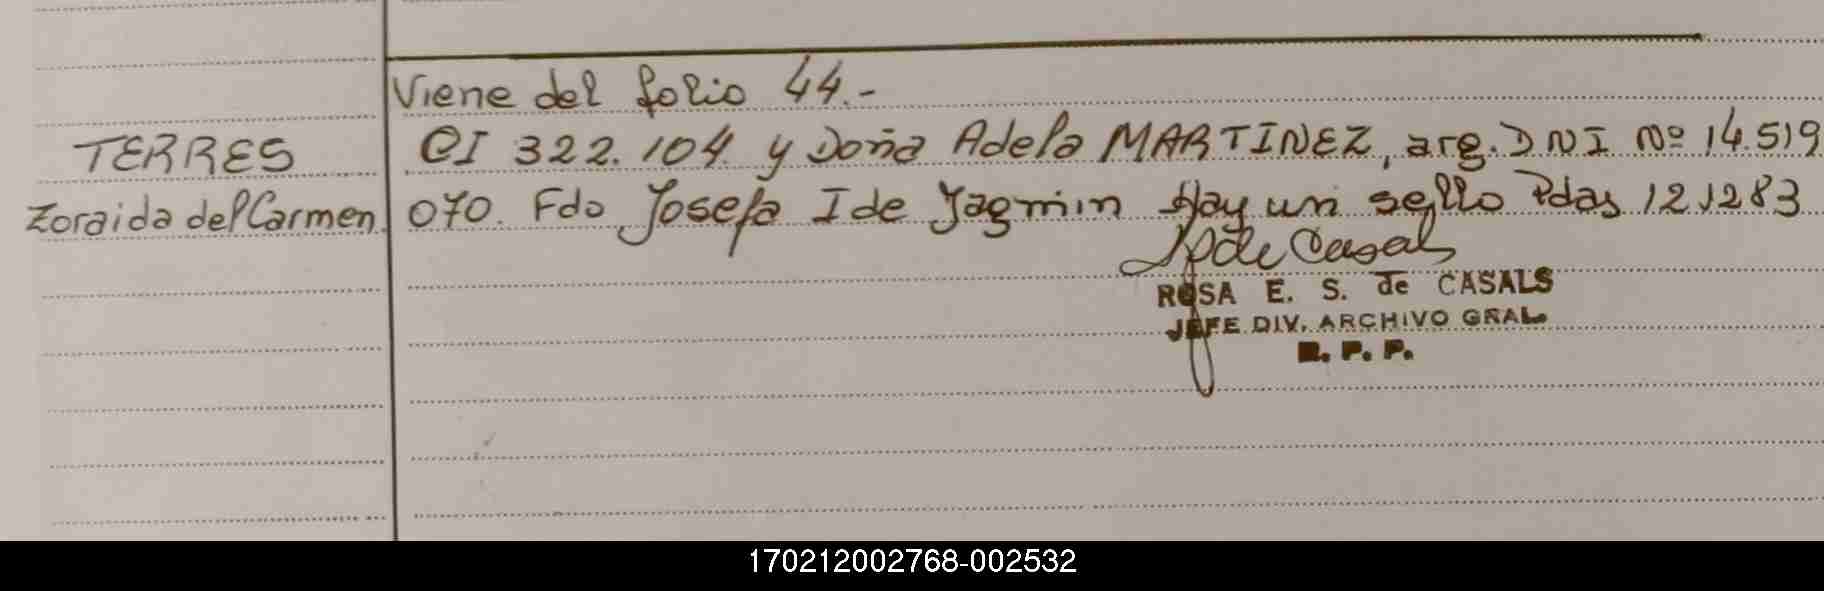 Viene del folio 44.-
TERRES
CI 322.104 y Doña Adela MARTINEZ, arg. DNI Nº 14.519
Zoraida del Carmen
070. Fdo Josefa I de Jagmin Hay un sello Pdas 121283
ROSA E. S. de CASALS
JEFE DIV. ARCHIVO GRAL.
R. P. P.
170212002768-002532